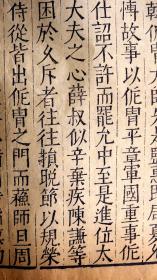 愽故事以侂胄平章軍國重事侂
仕詔不許而罷允中至是進位太
大夫之心薛叔似辛棄疾陳謙等
困於久斥者往往損晚節以規榮
侍從皆出侂胄之門而蘇師旦周